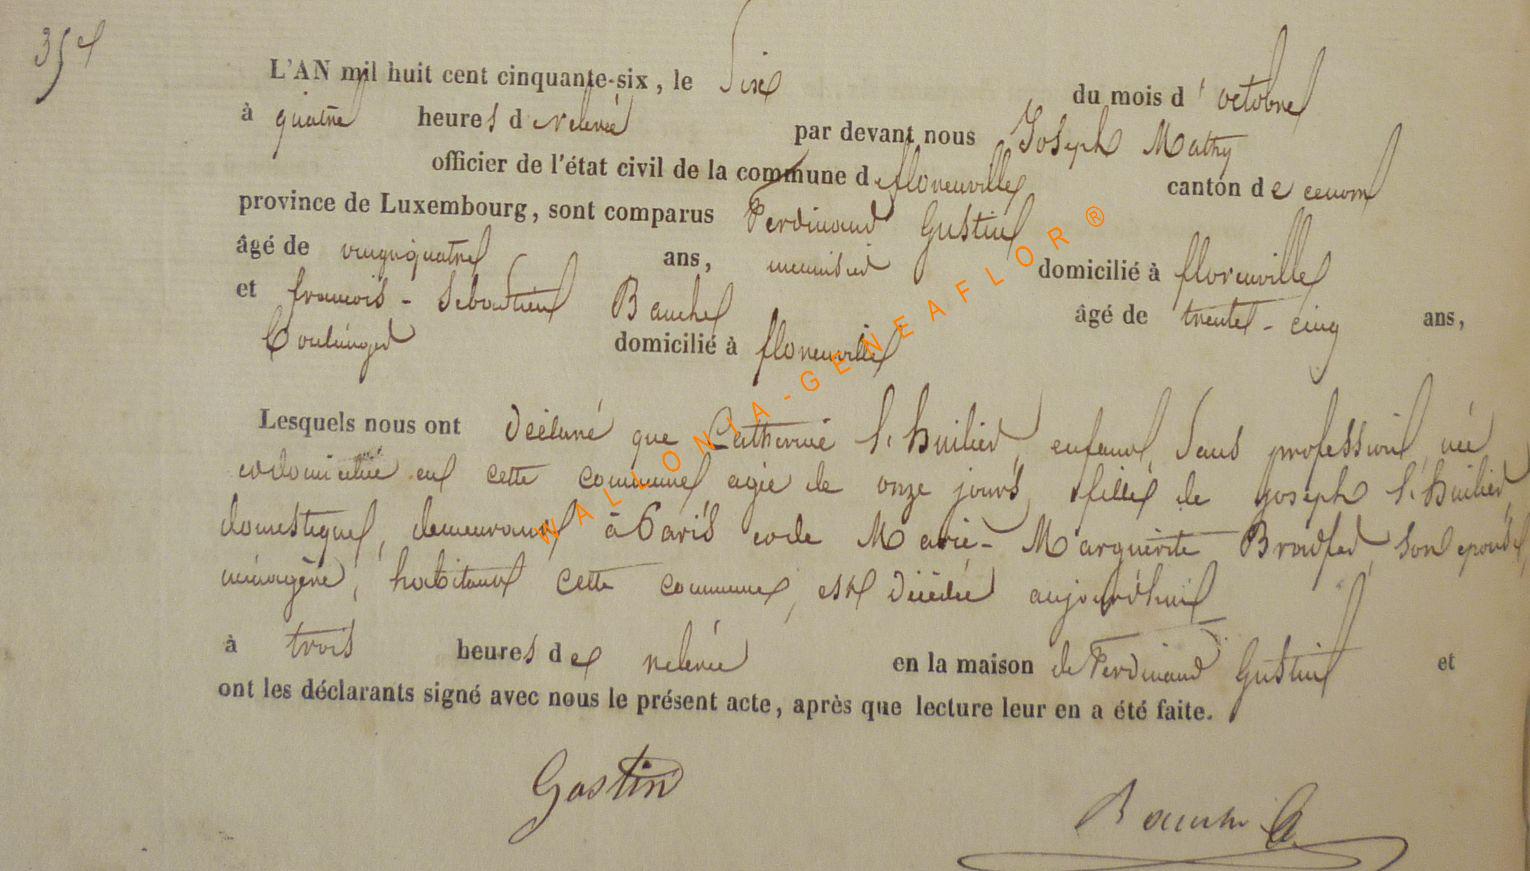 35e
L'AN mil huit cent cinquante-six, le Six du mois d'octobre
à quatre heures de relevée par devant nous Joseph Mathy
officier de l'état civil de la commune de florenville canton de ce nom
province de Luxembourg, sont comparus Ferdinand Gustin
âgé de vingt quatre ans, menuisier domicilié à florenville
et francois-Sebastien Bauche âgé de trente-cinq ans,
Boulanger domicilié à florenville
Lesquels nous ont déclaré que Catherine l'huilier, enfant, Sans profession, née
et domiciliée en cette commune agée de onze jours, fille de Joseph l'huilier,
domestique, demeurant à Paris et de Marie-Marguerite son epouse,
ménagère, habitant cette commune, est décédée aujourd'hui
à trois heures de relevée en la maison de Ferdinand Gustin et
ont les déclarants signé avec nous le présent acte, après que lecture leur en a été faite.
Gustin
Bauche
WALLONIA-GENEAFLOR®